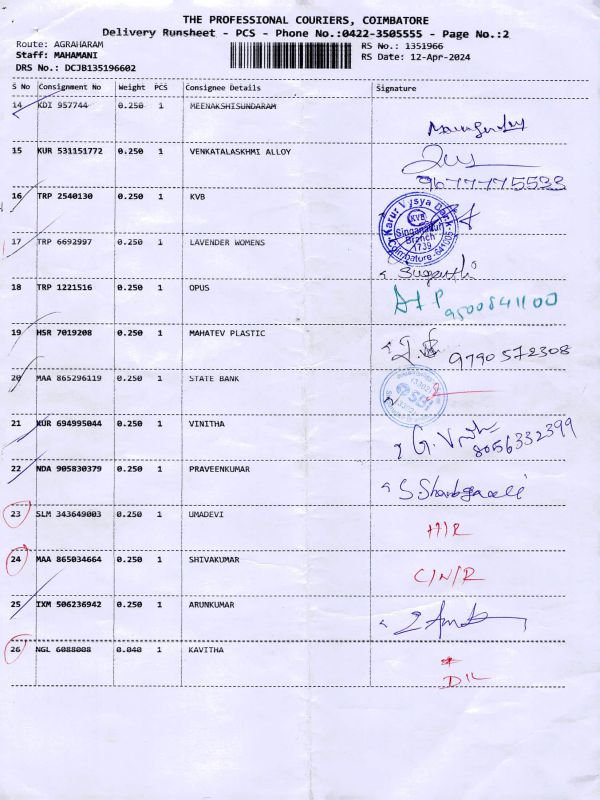 THE PROFESSIONAL COURIERS, COIMBATORE
Delivery Runsheet - PCS - Phone No.:0422-3505555 - Page No.:2
Route: AGRAHARAM
RS No.: 1351966
Staff: MAHAMANI
RS Date: 12-Apr-2024
DRS No.: DCJB135196602
S No Consignment No Weight PCS Consignee Details Signature
14 KDI 957744 0.250 1 MEENAKSHISUNDARAM
15 KUR 531151772 0.250 1 VENKATALASKHMI ALLOY
9677775533
16 TRP 2540130 0.250 1 KVB
Karur Vysya Bank
KVB
Singanallur
Branch
1739
Coimbatore-641005
17 TRP 6692997 0.250 1 LAVENDER WOMENS
18 TRP 1221516 0.250 1 OPUS
9500841100
19 HSR 7019208 0.250 1 MAHATEV PLASTIC
9790572308
20 MAA 865296119 0.250 1 STATE BANK
SBI
21 KUR 694995044 0.250 1 VINITHA
8056332399
22 NDA 905830379 0.250 1 PRAVEENKUMAR
23 SLM 343649003 0.250 1 UMADEVI
24 MAA 865034664 0.250 1 SHIVAKUMAR
C/N/R
25 IXM 506236942 0.250 1 ARUNKUMAR
26 NGL 6088008 0.040 1 KAVITHA
D/L